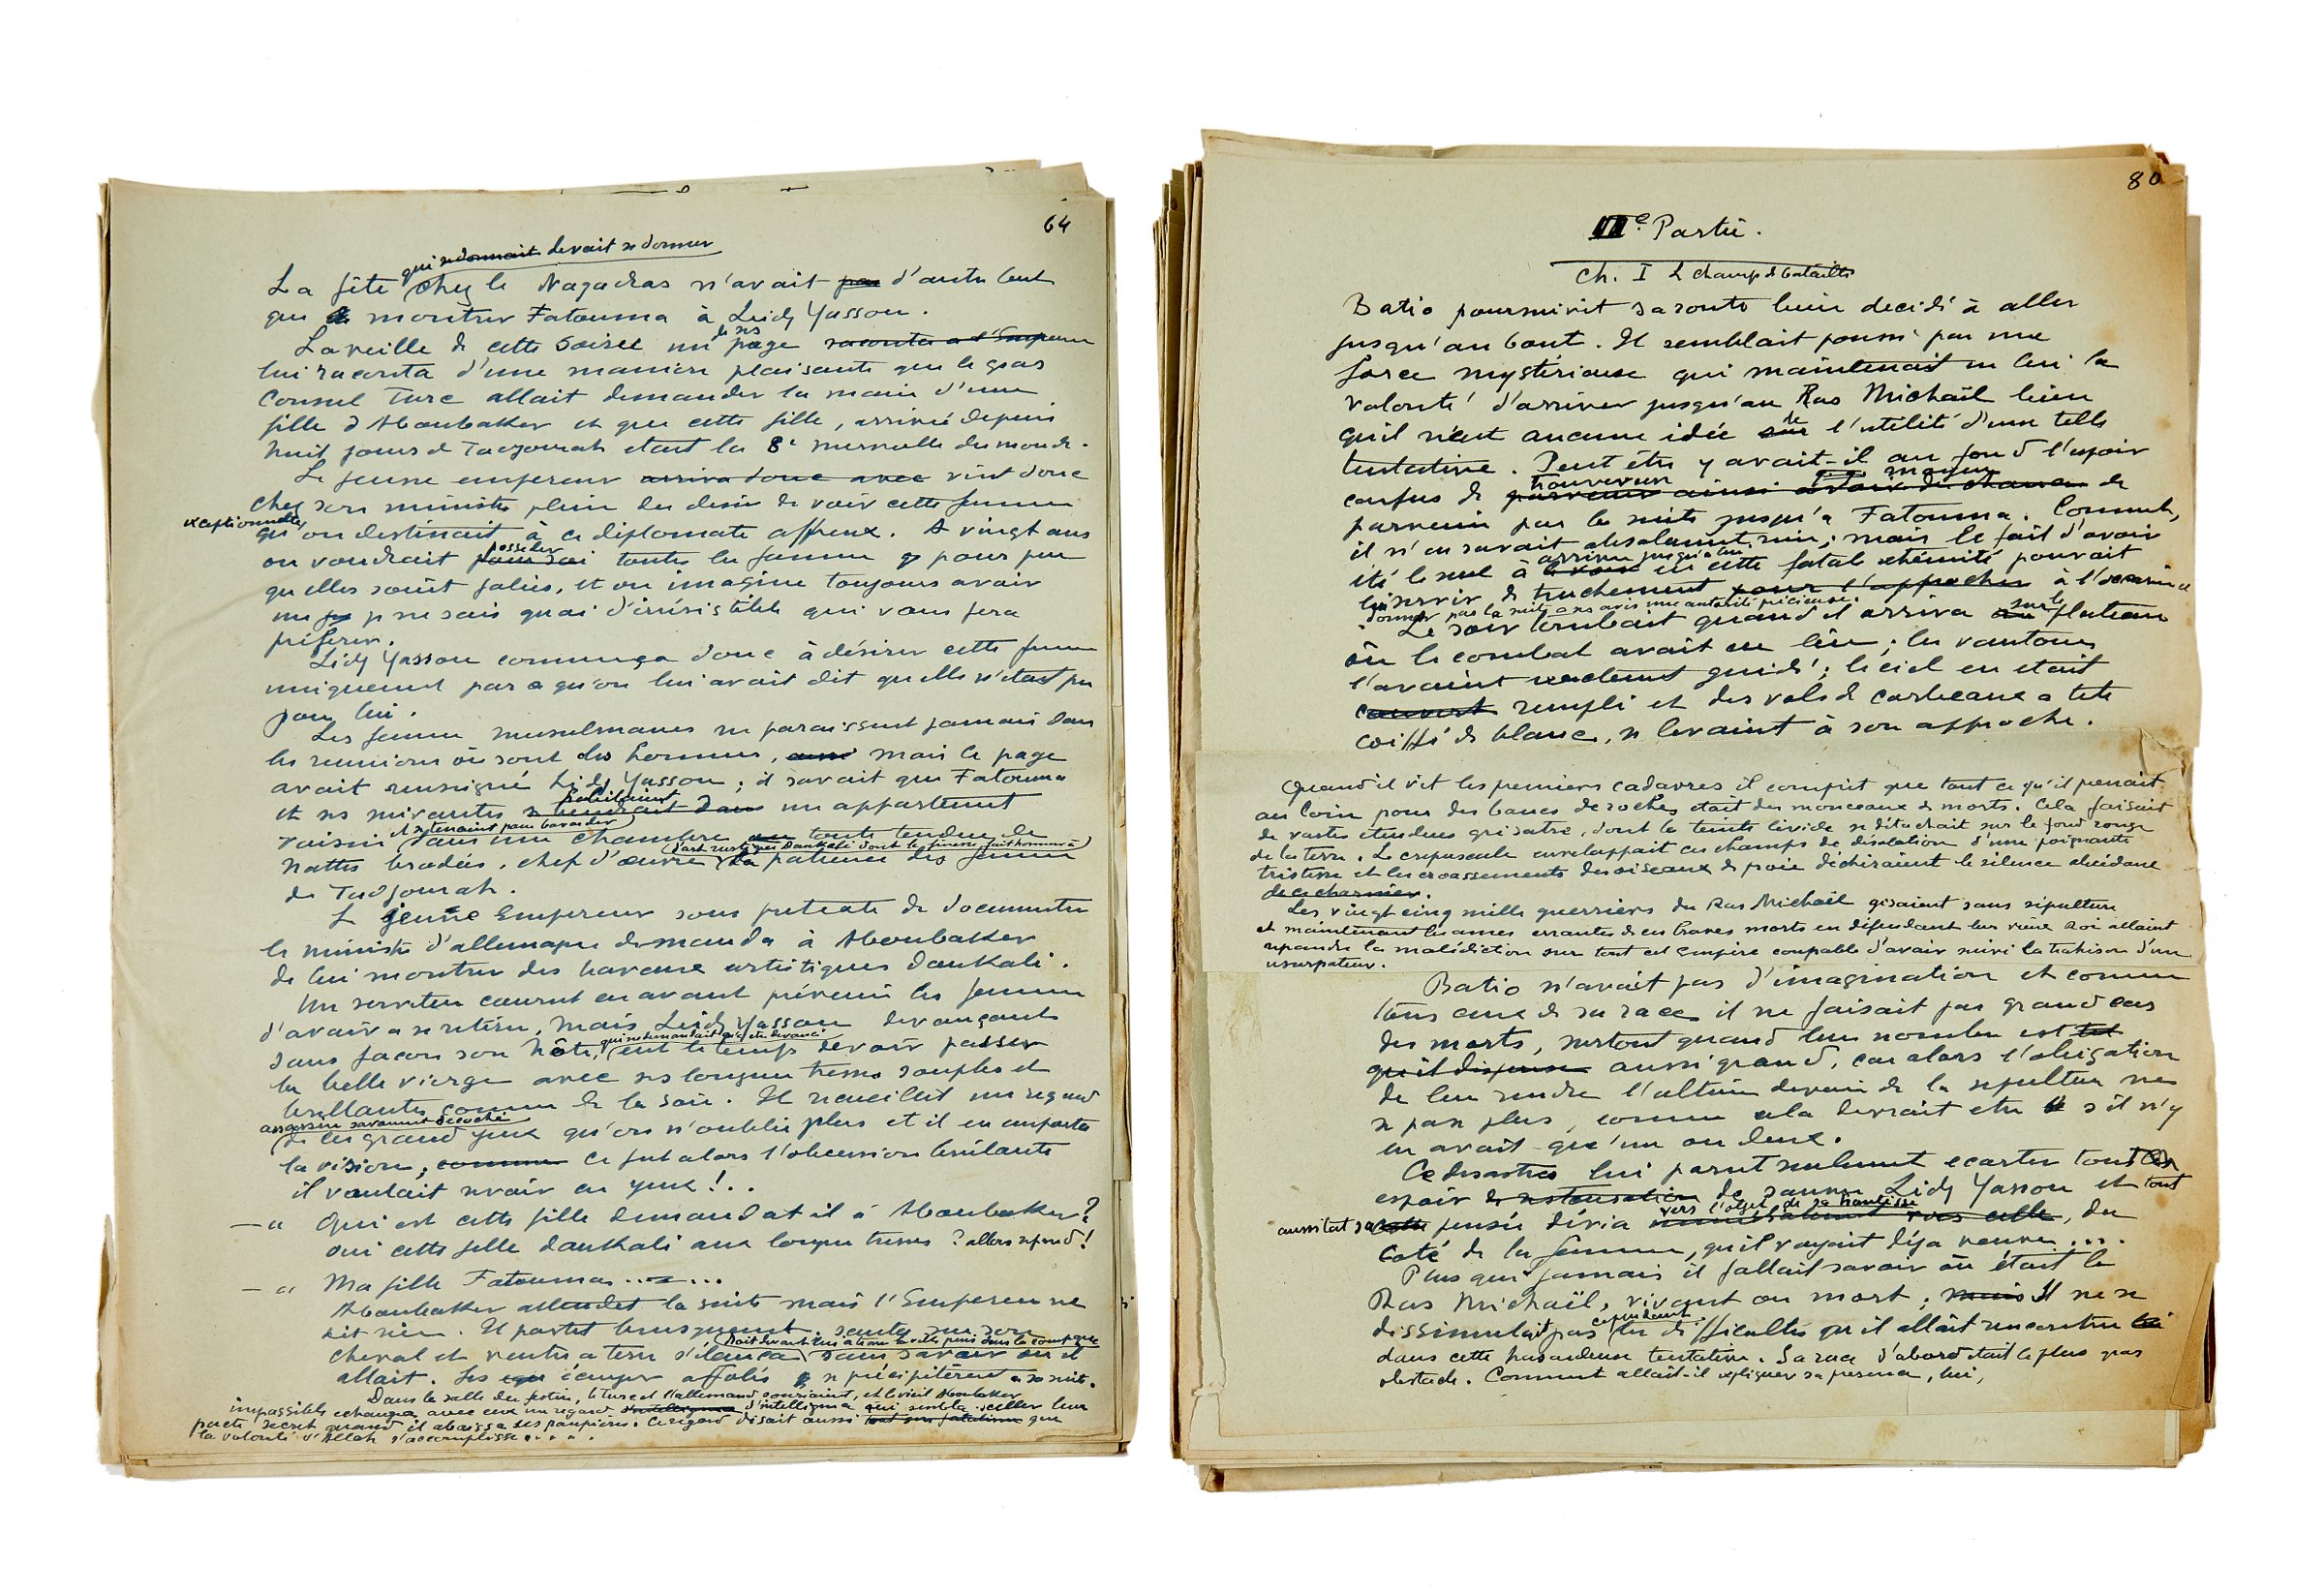 64
qui se donnait devait se donner
La fête chez le Nagadras n'avait pas d'autre but
que de montrer Fatouma à Lidj Yassou.
de ses
La veille de cette soirée un page raconta à l'Empereur
lui raconta d'une manière plaisante que le gros
Consul Turc allait demander la main d'une
fille d'Aboubaker et que cette fille, arrivée depuis
huit jours de Tadjourah etait la 8e merveille du monde.
Le jeune empereur arriva donc avec vint donc
chez son ministre plein du desir de voir cette femme
exceptionnelle
qu'on destinait à ce diplomate affreux. A vingt ans
posseder
on voudrait pour soi toutes les femmes pour peu
qu'elles soient jolies, et on imagine toujours avoir
un je ne sais quoi d'irrisistible qui vous fera
préferer.
Lidj Yassou commença donc à désirer cette femme
uniquement par ce qu'on lui avait dit qu'elle n'etait pas
pour lui.
Les femmes musulmanes ne paraissent jamais dans
les reunions où sont des hommes, mais le page
avait renseigné Lidj Yassou; il savait que Fatouma
habitaient
et ses suivantes se tenait dans un appartement
et se tenaient pour bavarder
voisin dans une chambre toute tendue de
d'art rustique Dankali dont la finesse fait honneur à
nattes brodées, chef d'œuvre de patience des femmes
de Tadjourah.
Le jeune Empereur sous pretexte de documenter
le ministre d'allemagne demanda à Aboubaker
de lui montrer des travaux artistiques Dankali.
Un serviteur courut en avant prévenir les femmes
d'avoir a se retirer, mais Lidj Yassou devançant
qui ne demandait qu'a etre devancé
sans façon son hôte, eut le temps de voir passer
la belle vierge avec ses longues tresses souples et
brillantes comme de la soie. Il recueillit un regard
assassin savamment décoché
de ces grands yeux qu'on n'oublie plus et il en emporta
la vision; comme ce fut alors l'obsession brûlante
il voulait revoir ces yeux!..
— " Qui est cette fille demandat il à Aboubaker?
oui cette fille dankali aux longues tresses? allons repond!
— " Ma fille Fatouma ......
Aboubaker attendit la suite mais l'Empereur ne
dit rien. Il partit brusquement, sauta sur son
droit devant lui à travers la ville puis dans la campagne
cheval et ventre a terre s'élança sans savoir où il
allait. Ses écuyers affolés se précipitèrent a sa suite.
Dans la salle du festin, le turc et l'allemand souriaient, et le vieil Aboubaker
impassible echangea avec eux un regard d'intelligence d'intelligence qui sembla sceller leur
pacte secret quand il abaissa ses paupières. Ce regard disait aussi tout son fatalisme que
la volonté d'Allah s'accomplisse....
80
IIIe Partie.
Ch. I Le champ de bataille
Batio poursuivit sa route bien decidé à aller
jusqu'au bout. Il semblait poussé par une
force mystérieuse qui maintenait en lui la
volonté d'arriver jusqu'au Ras Michaël bien
de
qu'il n'eut aucune idée sur l'utilité d'une telle
tentative. Peut être y avait-il au fond l'espoir
trouver un moyen
confus de parvenir ainsi de
parvenir par la suite jusqu'a Fatouma. Comment,
il n'en savait absolument rien; mais le fait d'avoir
arriver jusqu'a lui
été le seul à le voir en cette fatale extrémité pouvait
lui servir de truchement pour l'approcher à l'occasion et
donner par la suite a ses avis une autorité précieuse.
sur le
Le soir tombait quand il arriva au plateau
où le combat avait eu lieu; les vautours
l'avaient guidé; le ciel en etait
couvert rempli et des vols de corbeaux a tete
coiffé de blanc, se levaient à son approche.
Quand il vit les premiers cadavres il comprit que tout ce qu'il prenait
au loin pour des bancs de roches etait des monceaux de morts. Cela faisait
de vastes etendues grisatres, dont la teinte livide se détachait sur le fond rouge
de la terre. Le crepuscule enveloppait ces champs de désolation d'une poignante
tristesse et les croassements des oiseaux de proie déchiraient le silence obsédant
de ce charnier.
Les vingt cinq mille guerriers du Ras Michaël gisaient sans sépulture
et maintenant les ames errantes de ces braves morts en défendant leur vieux Roi allaient
repandre la malédiction sur tout cet Empire coupable d'avoir suivi la trahison d'un
usurpateur.
Batio n'avait pas d'imagination et comme
tous ceux de sa race il ne faisait pas grand cas
des morts, surtout quand leur nombre est tel
qu'il dispense aussi grand, car alors l'obligation
de leur rendre l'ultime devoir de la sepulture ne
se pose plus, comme cela devrait etre s'il n'y
en avait qu'un ou deux.
Ce desastre lui parut seulement ecarter tout
espoir de restauration de sauver Lidj Yassou et tout
vers l'objet de sa hantise
aussitot sa cette pensée dévia immédiatement vers celle, du
coté de la femme, qu'il voyait déja veuve....
Plus que jamais il fallait savoir où était le
Ras Michaël, vivant ou mort; mais Il ne se
cependant
dissimulait pas les difficultés qu'il allait rencontrer
dans cette hasardeuse tentative. Sa race d'abord etait le plus gros
obstacle. Comment allait-il expliquer sa presence, lui,